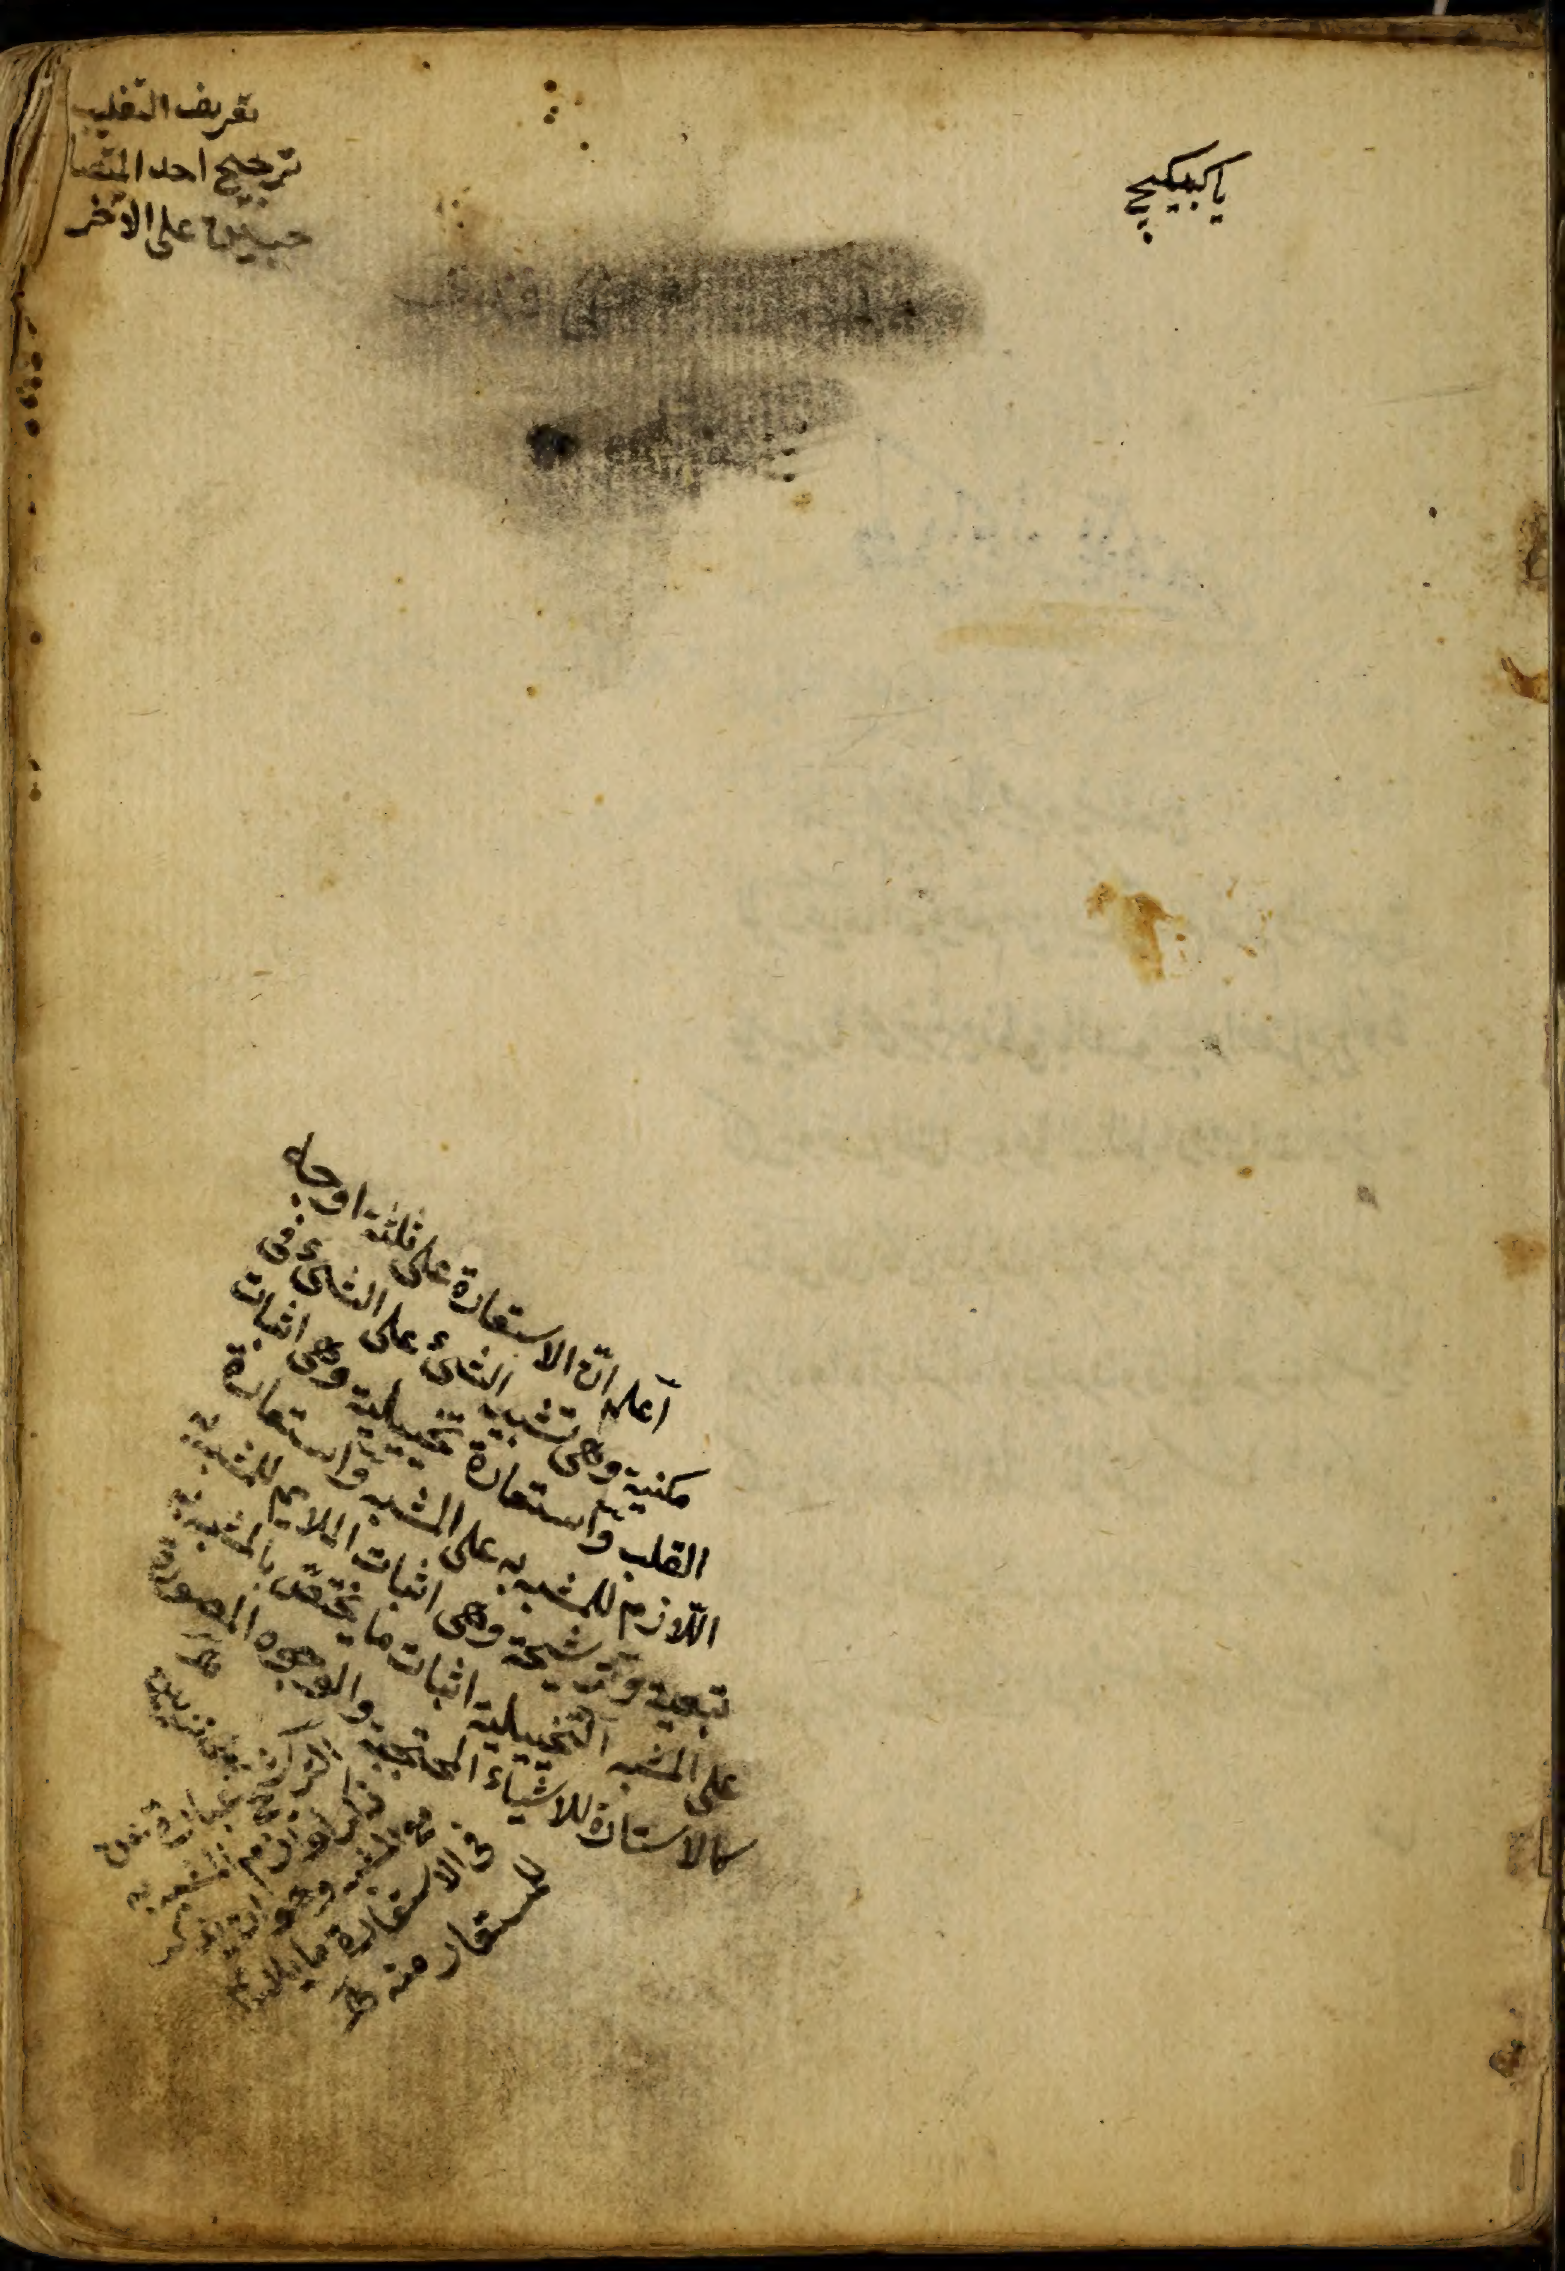 يا كبيكج
تعريف التغليب
ترجيح احد المتصا
حبين على الآخر
آعلم انّ الاستعارة على ثلثة اوجه
مكنية وهى تشبيه الشئ على الشئ فى
القلب وآستعارة تخييلية وهى اثبات
اللّازم للمشبه به على المشبه واستعارة
تبعية وترشيحة وهى اثبات الملايم للمشبه به
على المشبه التخييلية اثبات ما يختصّ بالمشبه به
كالاستارة للاشياء المحتجبة والوجوه المصورة
الترشيح عبارة عن
ذكر لوازم المشبه به
مع المشبه وهو ان يذكر
فى الاستعارة ما يلايم
المستعار منه